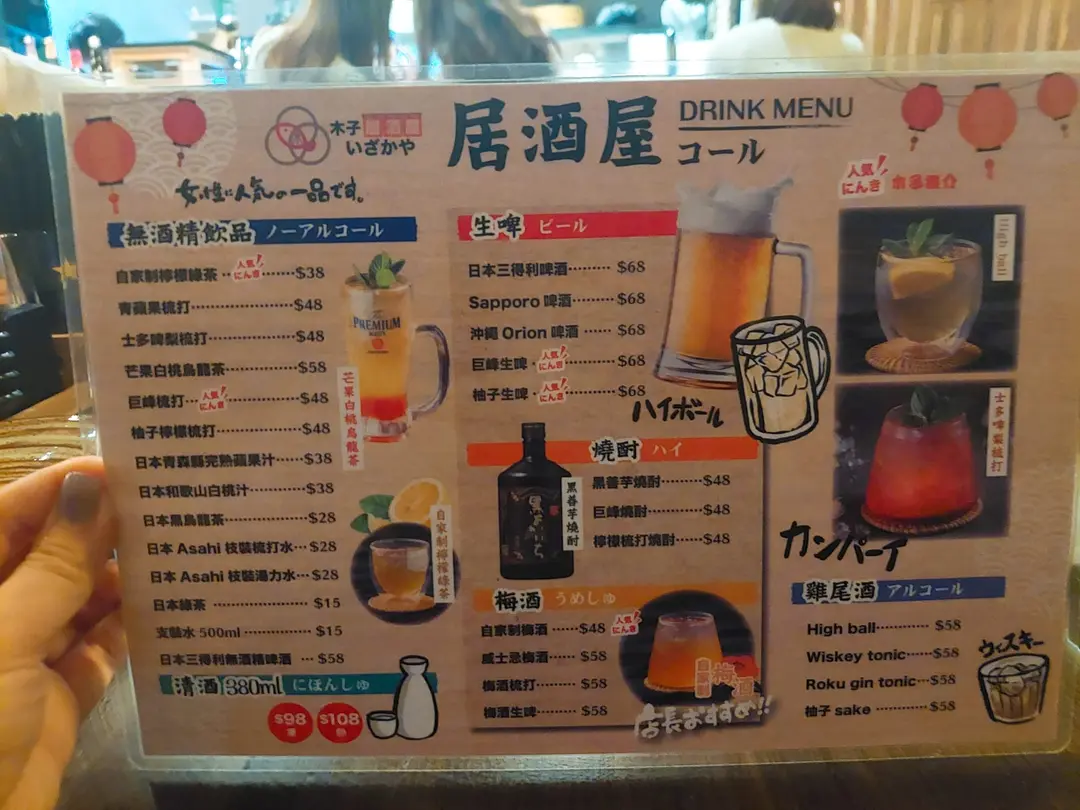 木子 居酒屋
いざかや
居酒屋
DRINK MENU
コール
女性に人気の一品です。
無酒精飲品 ノーアルコール
自家制檸檬綠茶 人気!にんき $38
青蘋果梳打 $48
士多啤梨梳打 $48
芒果白桃烏龍茶 $58
巨峰梳打 人気!にんき $48
柚子檸檬梳打 $48
日本青森縣完熟蘋果汁 $38
日本和歌山白桃汁 $38
日本黑烏龍茶 $28
日本 Asahi 枝裝梳打水 $28
日本 Asahi 枝裝湯力水 $28
日本綠茶 $15
支裝水 500ml $15
日本三得利無酒精啤酒 $58
PREMIUM
芒果白桃烏龍茶
自家制檸檬綠茶
清酒 380ml にほんしゅ
$98
$108
生啤 ビール
日本三得利啤酒 $68
Sapporo 啤酒 $68
沖繩 Orion 啤酒 $68
巨峰生啤 人気!にんき $68
柚子生啤 人気!にんき $68
ハイボール
燒酎 ハイ
黑善芋燒酎
黑善芋燒酎 $48
巨峰燒酎 $48
檸檬梳打燒酎 $48
梅酒 うめしゅ
自家制梅酒 $48 人気!にんき
威士忌梅酒 $58
梅酒梳打 $58
梅酒生啤 $58
自家制 梅酒
店長おすすめ!!
人気!にんき
High ball
士多啤梨梳打
カンパーイ
雞尾酒 アルコール
High ball $58
Wiskey tonic $58
Roku gin tonic $58
柚子 sake $58
ウィスキー